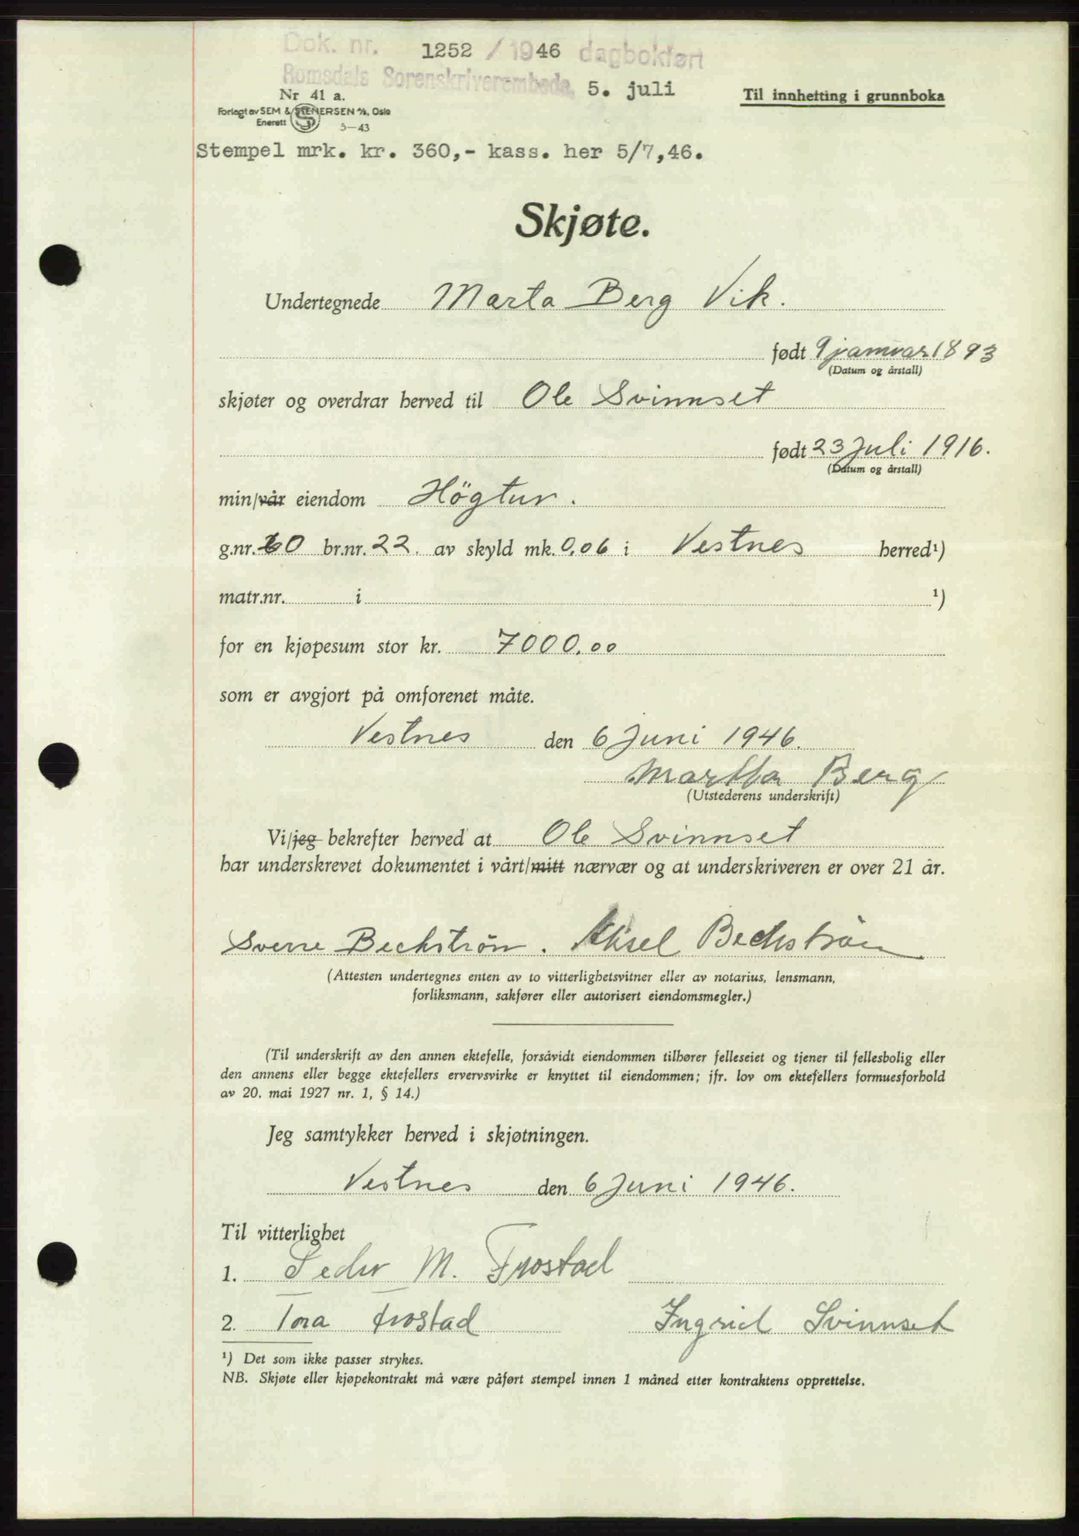 Dok. nr. 1252 / 1946 dagbokført
Romsdals Sorenskriverembede, 5. juli
Nr 41 a.
Til innhefting i grunnboka
Forlagt av SEM & STENERSEN A/S, Oslo
Enerett S 5-43
Stempel mrk. kr. 360,- kass. her 5/7,46.
Skjøte.
Undertegnede Marta Berg Vik.
født 9 januar 1893
(Datum og årstall)
skjøter og overdrar herved til Ole Svinnset
født 23 Juli 1916.
(Datum og årstall)
min/vår eiendom Högtun.
g.nr. 60 br.nr. 22. av skyld mk. 0,06 i Vestnes herred¹)
matr.nr. i ¹)
for en kjøpesum stor kr. 7000,00
som er avgjort på omforenet måte.
Vestnes den 6 Juni 1946.
Martha Berg
(Utstederens underskrift)
Vi/jeg bekrefter herved at Ole Svinnset
har underskrevet dokumentet i vårt/mitt nærvær og at underskriveren er over 21 år.
Sverre Beckström. Aksel Beckström
(Attesten undertegnes enten av to vitterlighetsvitner eller av notarius, lensmann,
forliksmann, sakfører eller autorisert eiendomsmegler.)
(Til underskrift av den annen ektefelle, forsåvidt eiendommen tilhører felleseiet og tjener til fellesbolig eller
den annens eller begge ektefellers ervervsvirke er knyttet til eiendommen; jfr. lov om ektefellers formuesforhold
av 20. mai 1927 nr. 1, § 14.)
Jeg samtykker herved i skjøtningen.
Vestnes den 6 Juni 1946.
Til vitterlighet
1. Peder M. Frostad
2. Tora Frostad Ingrid Svinnset
¹) Det som ikke passer strykes.
NB. Skjøte eller kjøpekontrakt må være påført stempel innen 1 måned etter kontraktens opprettelse.